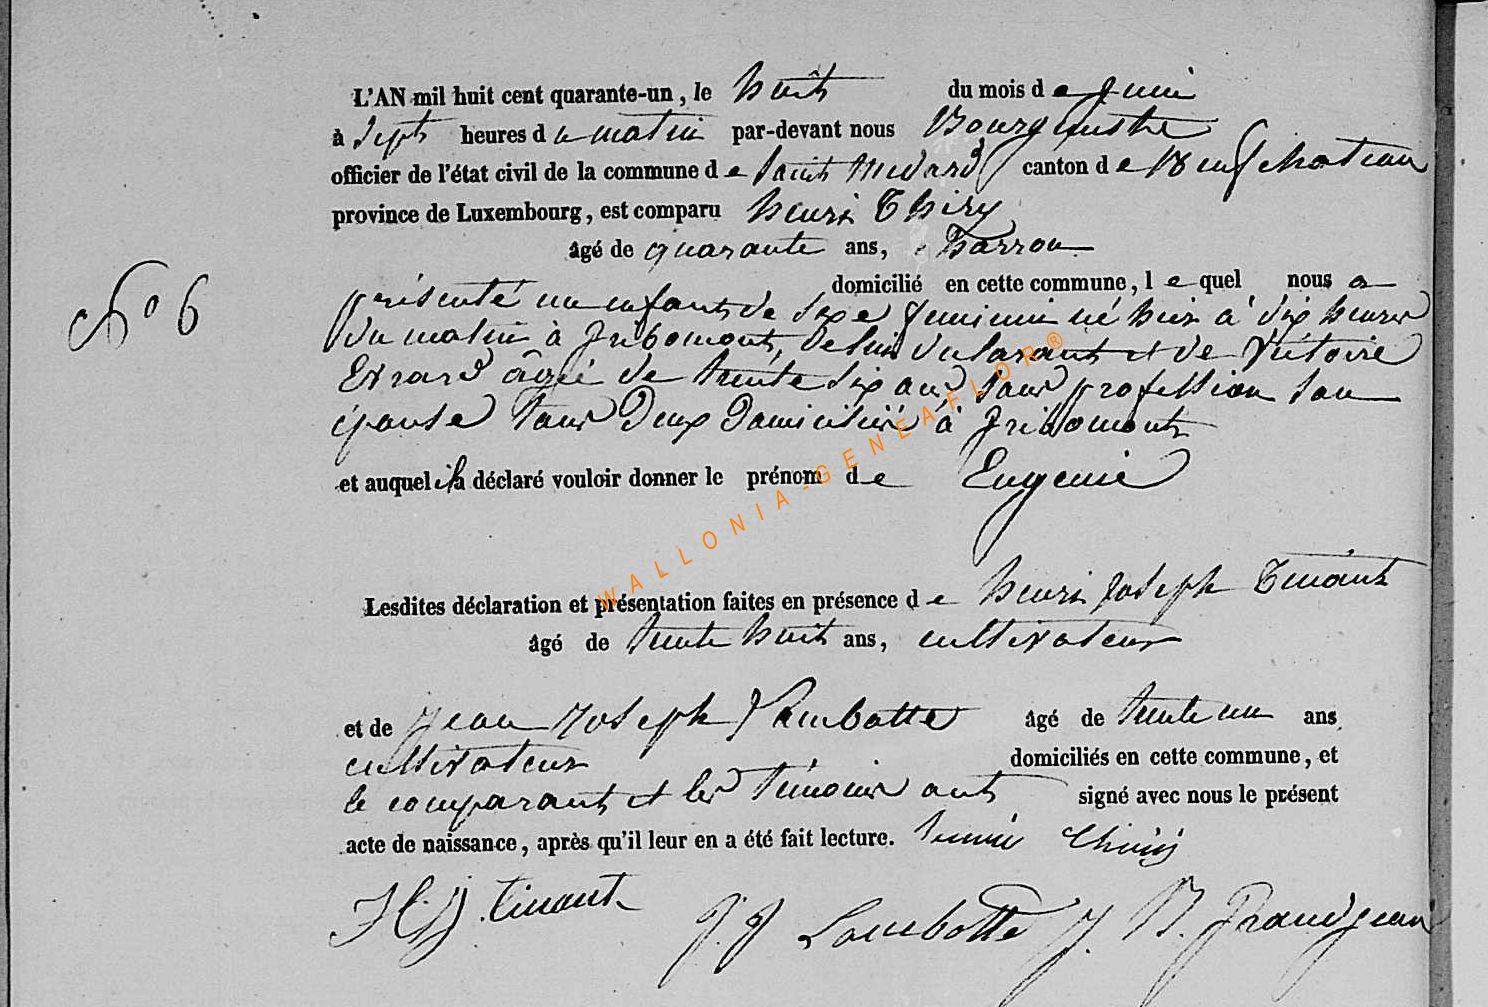 L'AN mil huit cent quarante-un, le huit du mois de Juin
à Sept heures du matin par-devant nous Bourgmestre
officier de l'état civil de la commune de Saint Medard canton de Neufchateau
province de Luxembourg, est comparu henri Thiry
âgé de quarante ans, charron
domicilié en cette commune, lequel nous a
N° 6
présenté un enfant de sexe feminin né hier à dix heures
du matin à fribomont, de lui declarant et de Victoire
Evrard âgée de trente six ans sans profession son
épouse tous Deux Domiciliés à fribomont
et auquel il a déclaré vouloir donner le prénom de Eugenie
WALLONIA-GENEAFLOR®
Lesdites déclaration et présentation faites en présence de henri Joseph Tinant
âgé de trente huit ans, cultivateur
et de Jean Joseph Lambotte âgé de trente un ans
cultivateur domiciliés en cette commune, et
le comparant et les témoins ont signé avec nous le présent
acte de naissance, après qu'il leur en a été fait lecture. henri thiry
H. J. tinant J. J Lambotte J. N. Grandjean